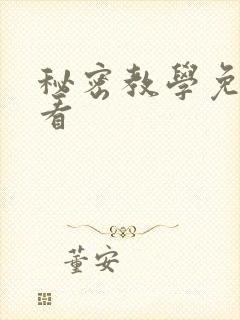 秘密教學免
看
董安